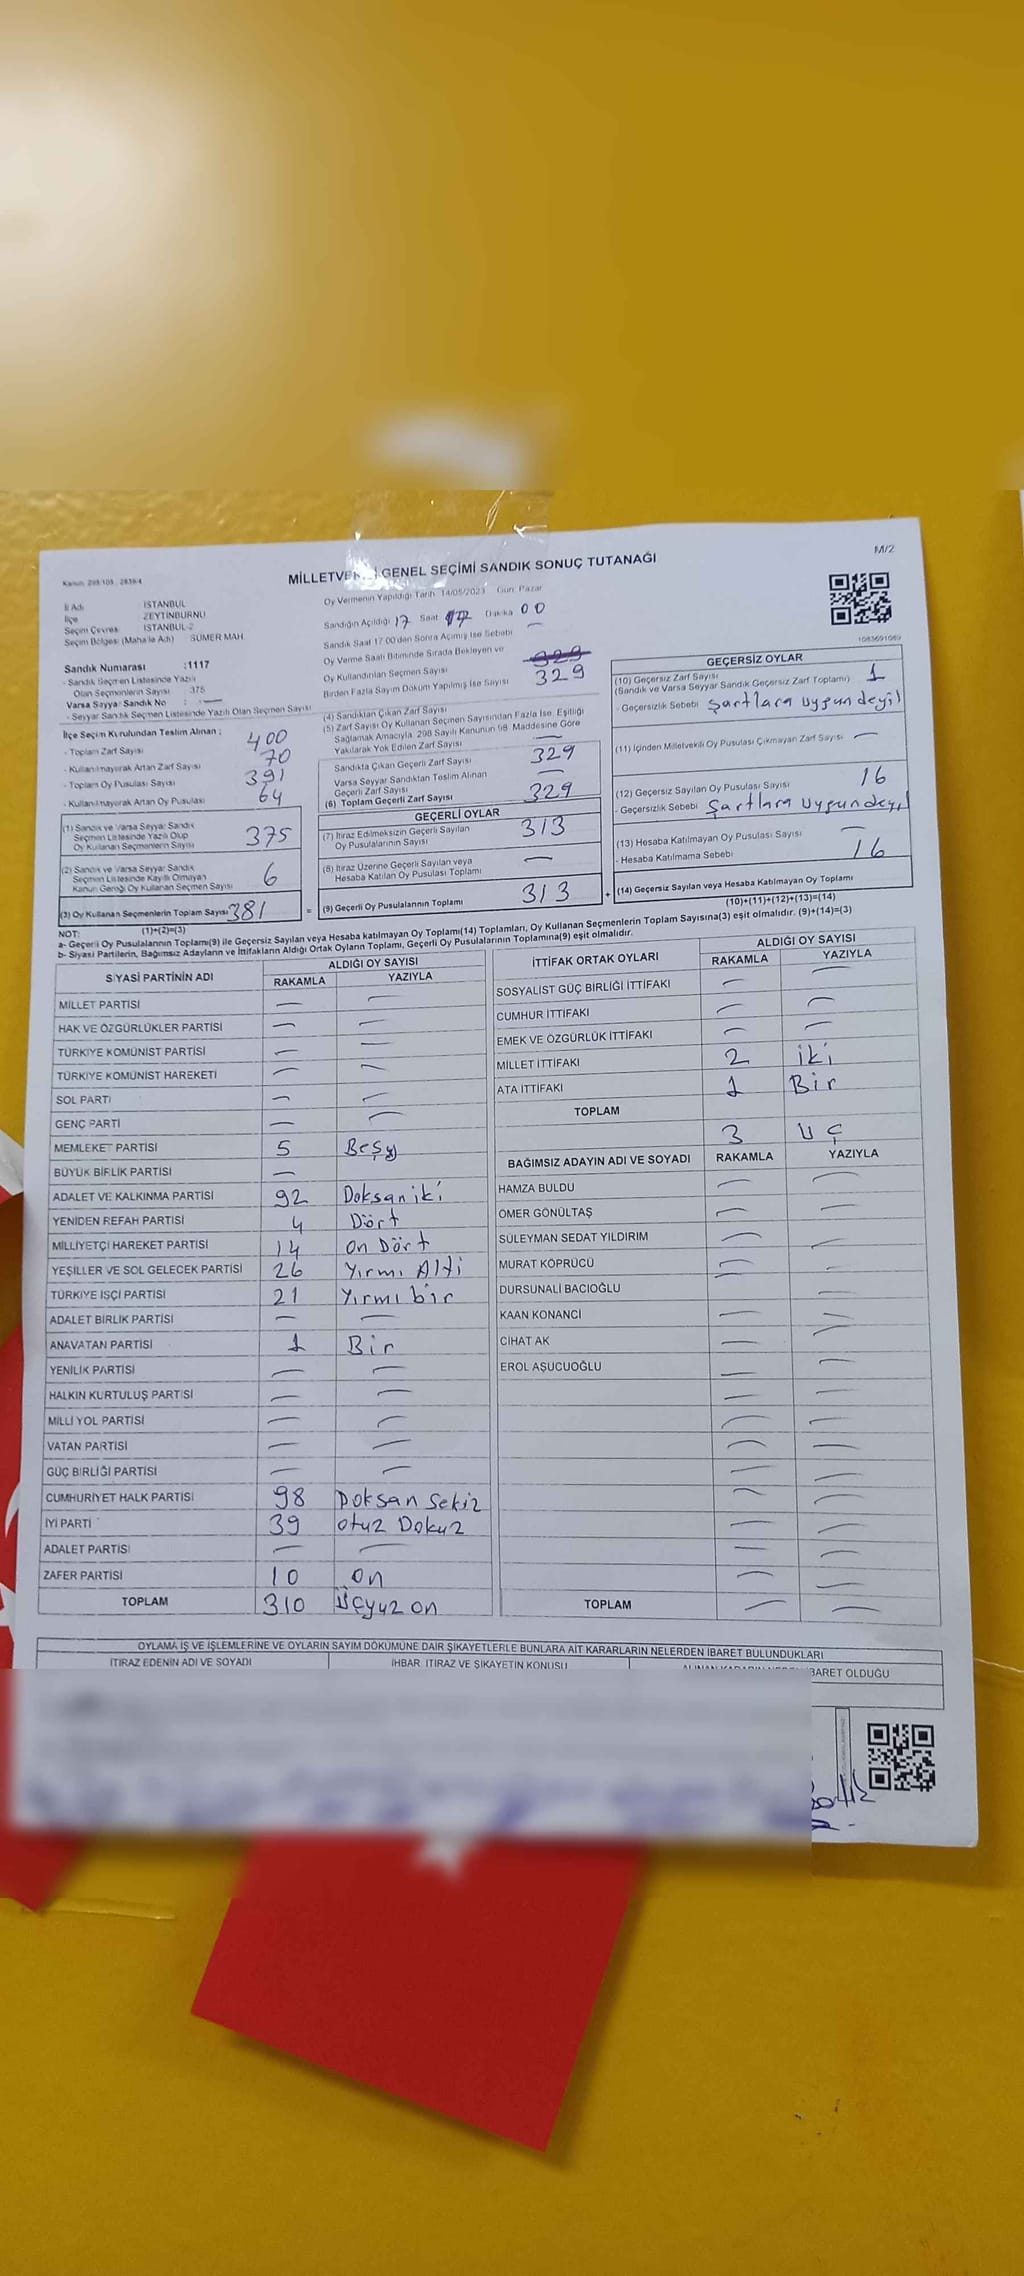 M/2
MİLLETVE GENEL SEÇİMİ SANDIK SONUÇ TUTANAĞI
İl Adı İSTANBUL
İlçe ZEYTİNBURNU
Seçim Çevresi İSTANBUL-2
Seçim Bölgesi (Mahalle Adı) SÜMER MAH.
Sandık Numarası :1117
- Sandık Seçmen Listesinde Yazılı
Olan Seçmenlerin Sayısı : 375
Varsa Seyyar Sandık No : —
- Seyyar Sandık Seçmen Listesinde Yazılı Olan Seçmen Sayısı
Oy Vermenin Yapıldığı Tarih 14/05/2023 Gün: Pazar
Sandığın Açıldığı 17 Saat 17 Dakika 00
Sandık Saat 17.00'den Sonra Açılmış İse Sebebi —
Oy Verme Saati Bitiminde Sırada Bekleyen ve 329
Oy Kullandırılan Seçmen Sayısı 329
Birden Fazla Sayım Döküm Yapılmış İse Sayısı
1083691069
İlçe Seçim Kurulundan Teslim Alınan :
- Toplam Zarf Sayısı 400
- Kullanılmayarak Artan Zarf Sayısı 70
- Toplam Oy Pusulası Sayısı 391
- Kullanılmayarak Artan Oy Pusulası 64
(1) Sandık ve Varsa Seyyar Sandık
Seçmen Listesinde Yazılı Olup
Oy Kullanan Seçmenlerin Sayısı 375
(2) Sandık ve Varsa Seyyar Sandık
Seçmen Listesinde Kayıtlı Olmayan
Kanun Gereği Oy Kullanan Seçmen Sayısı 6
(3) Oy Kullanan Seçmenlerin Toplam Sayısı 381
(1)+(2)=(3)
(4) Sandıktan Çıkan Zarf Sayısı
(5) Zarf Sayısı Oy Kullanan Seçmen Sayısından Fazla İse, Eşitliği
Sağlamak Amacıyla, 298 Sayılı Kanunun 98. Maddesine Göre
Yakılarak Yok Edilen Zarf Sayısı —
Sandıkta Çıkan Geçerli Zarf Sayısı 329
Varsa Seyyar Sandıktan Teslim Alınan
Geçerli Zarf Sayısı —
(6) Toplam Geçerli Zarf Sayısı 329
GEÇERLİ OYLAR
(7) İtiraz Edilmeksizin Geçerli Sayılan
Oy Pusulalarının Sayısı 313
(8) İtiraz Üzerine Geçerli Sayılan veya
Hesaba Katılan Oy Pusulası Toplamı —
= (9) Geçerli Oy Pusulalarının Toplamı 313 +
GEÇERSİZ OYLAR
(10) Geçersiz Zarf Sayısı
(Sandık ve Varsa Seyyar Sandık Geçersiz Zarf Toplamı) 1
- Geçersizlik Sebebi şartlara uygundeyil
(11) İçinden Milletvekili Oy Pusulası Çıkmayan Zarf Sayısı —
(12) Geçersiz Sayılan Oy Pusulası Sayısı 16
- Geçersizlik Sebebi şartlara uygundeyil
(13) Hesaba Katılmayan Oy Pusulası Sayısı —
- Hesaba Katılmama Sebebi 16
(14) Geçersiz Sayılan veya Hesaba Katılmayan Oy Toplamı
(10)+(11)+(12)+(13)=(14)
NOT:
a- Geçerli Oy Pusulalarının Toplamı(9) ile Geçersiz Sayılan veya Hesaba katılmayan Oy Toplamı(14) Toplamları, Oy Kullanan Seçmenlerin Toplam Sayısına(3) eşit olmalıdır. (9)+(14)=(3)
b- Siyasi Partilerin, Bağımsız Adayların ve İttifakların Aldığı Ortak Oyların Toplamı, Geçerli Oy Pusulalarının Toplamına(9) eşit olmalıdır.
SİYASİ PARTİNİN ADI ALDIĞI OY SAYISI
RAKAMLA YAZIYLA
MİLLET PARTİSİ — —
HAK VE ÖZGÜRLÜKLER PARTİSİ — —
TÜRKİYE KOMÜNİST PARTİSİ — —
TÜRKİYE KOMÜNİST HAREKETİ — —
SOL PARTİ — —
GENÇ PARTİ — —
MEMLEKET PARTİSİ 5 Beşy
BÜYÜK BİRLİK PARTİSİ —
ADALET VE KALKINMA PARTİSİ 92 Doksan iki
YENİDEN REFAH PARTİSİ 4 Dört
MİLLİYETÇİ HAREKET PARTİSİ 14 on Dört
YEŞİLLER VE SOL GELECEK PARTİSİ 26 Yırmı Alti
TÜRKİYE İŞÇİ PARTİSİ 21 Yırmı bir
ADALET BİRLİK PARTİSİ — —
ANAVATAN PARTİSİ 1 Bir
YENİLİK PARTİSİ — —
HALKIN KURTULUŞ PARTİSİ — —
MİLLİ YOL PARTİSİ — —
VATAN PARTİSİ — —
GÜÇ BİRLİĞİ PARTİSİ — —
CUMHURİYET HALK PARTİSİ 98 Doksan Sekiz
İYİ PARTİ 39 otuz Dokuz
ADALET PARTİSİ — —
ZAFER PARTİSİ 10 on
TOPLAM 310 Üçyuz on
İTTİFAK ORTAK OYLARI ALDIĞI OY SAYISI
RAKAMLA YAZIYLA
SOSYALİST GÜÇ BİRLİĞİ İTTİFAKI — —
CUMHUR İTTİFAKI — —
EMEK VE ÖZGÜRLÜK İTTİFAKI — —
MİLLET İTTİFAKI 2 iki
ATA İTTİFAKI 1 Bir
TOPLAM 3 Uç
BAĞIMSIZ ADAYIN ADI VE SOYADI RAKAMLA YAZIYLA
HAMZA BULDU — —
ÖMER GÖNÜLTAŞ — —
SÜLEYMAN SEDAT YILDIRIM — —
MURAT KÖPRÜCÜ — —
DURSUNALİ BACIOĞLU — —
KAAN KONANCİ — —
CİHAT AK — —
EROL AŞUCUOĞLU — —
TOPLAM — —
OYLAMA İŞ VE İŞLEMLERİNE VE OYLARIN SAYIM DÖKÜMÜNE DAİR ŞİKAYETLERLE BUNLARA AİT KARARLARIN NELERDEN İBARET BULUNDUKLARI
İTİRAZ EDENİN ADI VE SOYADI İHBAR, İTİRAZ VE ŞİKAYETİN KONUSU BARET OLDUĞU